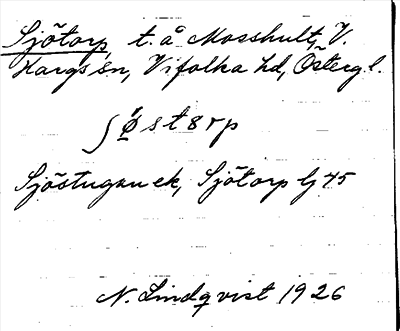 Sjötorp, t. å Mosshult, V.
Hargs sn, Vifolka hd, Östergl.
ʃǿst8rp
Sjöstugan ek, Sjötorp lj 45
N. Lindqvist 1926